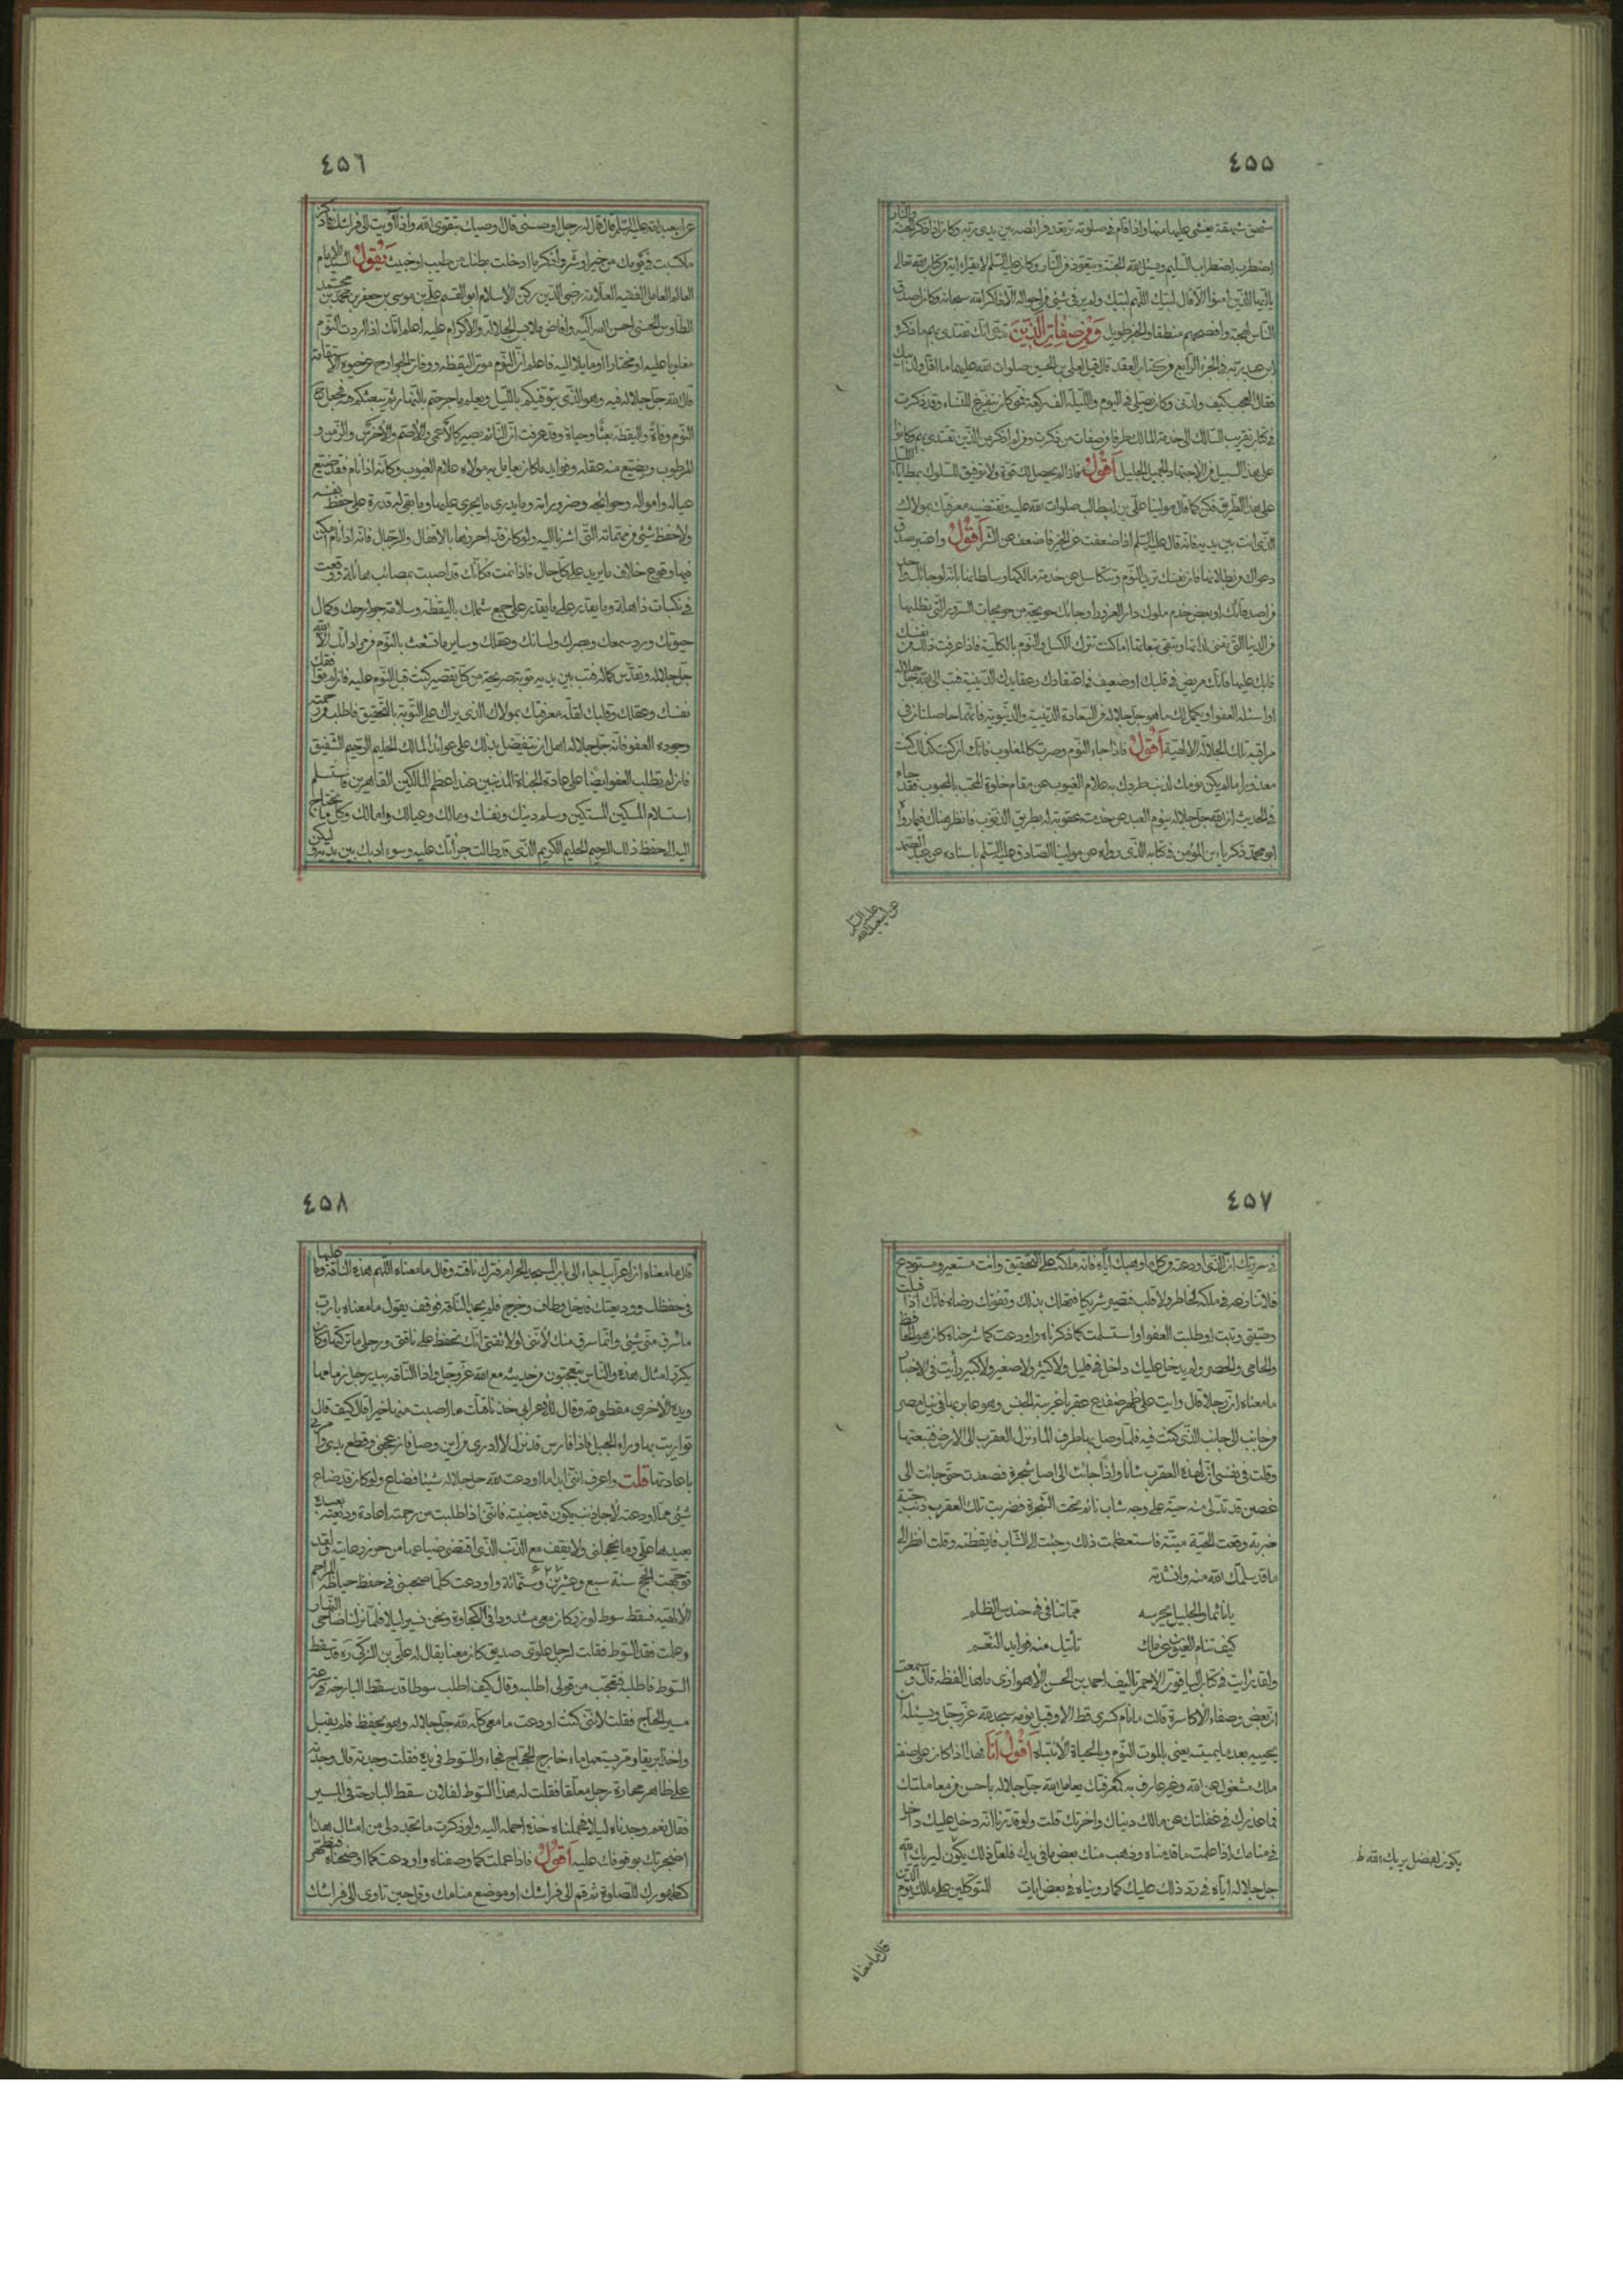 ٤٥٥
شهق شهقة يغشى عليه منها واذا قام فى صلوته ترتعد فرائصه بين يدى ربه وكان اذا ذكر الجنة والنار
اضطرب اضطراب السليم ويسئل الله الجنة ويتعوذ من النار وكان عليه السلم لا يقراء اية من كتاب الله تعالى
يا ايها الذين امنوا الا قال لبيك اللهم لبيك ولم ير فى شئ من احواله الا ذاكرا لله سبحانه وكان اصدق
الناس لهجة وافصحهم منطقا والخبر طويل ومن صفات الذين تدعى انك تقتدى بهم ما ذكره
ابن عبد ربه فى الجزء الرابع من كتاب العقد قال قيل لعلى بن الحسين صلوات الله عليهما ما اقل ولد ابيك
فقال العجب كيف ولدنى وكان يصلى فى اليوم والليلة الف ركعة فمتى كان يتفرغ للنساء وقد ذكرت
فى كتاب تقريب السالك الى خدمة المالك طرفا من صفات من ذكرت ومن لم اذكر من الذين تقتدى بهم وكانوا
على هذا السبيل من الاجتهاد الجميل الجليل اقول فاذا لم يحصل لك قوة ولا توفيق للسلوك بمطايا الليل
على هذا الطريق فكن كما قال مولينا على بن ابيطالب صلوات الله عليه وتقتضيه معرفتك بمولاك
الذى انت بين يديه فانه قال عليه السلم اذا ضعفت عن الخير فاضعف عن الشر اقول واعتبر صدق
دعواك من بطلانها فان نفسك تريد النوم وتتكاسل عن خدمة مالكها وسلطانها بانه لو جائك واحد
من اصدقائك او بعض خدم ملوك دار الغرور او جائك حويجة من حويجات السرور التى تطلبها
من الدنيا التى تفنى لذاتها وتبقى تبعاتها اما كنت تترك الكسل والنوم بالكلية فاذا عرفت ذلك من نفسك
فابك عليها فانك مريض فى قلبك او ضعيف فى اعتقادك وعقايدك الدينية فتب الى الله جل جلاله
او اسئله العفو او يكمل لك ما هو جل جلاله من السعادة الدينية والدنيوية فانهما حاصلتان فى
مراقبة تلك الجلالة الالهية اقول فاذا جاء النوم وصرت كالمغلوب فانك ان كنت كذلك كنت
معذورا ما لم يكن نومك لذنب طردك به علام الغيوب عن مقام خلوة المحب بالمحبوب فقد جاء
فى الحديث ان الله جل جلاله ينوم العبد عن خدمته عقوبة له بطريق الذنوب فانظر هناك فيما رواه
ابو محمد ذكرياء بن المؤمن فى كتابه الذى رواه عن مولينا الصادق عليه السلم باسناده عن عبد الصمد
عن ابيعبدالله عليه السلم
٤٥٦
عن ابيعبدالله عليه السلم قال قال له رجل اوصنى قال اوصيك بتقوى الله واذا أويت الى فراشك فاذكر
ما كسبت فى يومك من خير او شر وانفكر ما ادخلت بطنك من طيب او خبيث يقول السيد الامام
العالم العامل الفقيه العلامة رضى الدين ركن الاسلام ابو القسم على بن موسى بن جعفر بن محمد بن محمد
الطاوس الحسنى احسن الله اكليه وافاض ملابس الجلالة والاكرام عليه اعلم انك اذا اردت النوم
مغلوبا عليه او مختارا او مايلا اليه فاعلم ان النوم موت اليقظة ووفاة الجوارح عن حيوة الاستقامة
قال الله جل جلاله فيه وهو الذى يتوفيكم بالليل ويعلم ما جرحتم بالنهار ثم يبعثكم فيه فجعل
النوم وفاة واليقظة بعثا وحياة وقد عرفت ان النائم يصير كالاعمى والاصم والاخرس والزمن و
المرطوب ويضيع منه عقله وفوايد ما كان يعامل به مولاه علام الغيوب وكانه اذا نام فقد ضيع
عياله وامواله وحوائجه وضروراته وما يدرى ما يجرى عليها وما بقى له قدرة على حفظ نفسه
ولا حفظ شئ من مهماته التى اشرنا اليه ولو كان قد احرزها بالاقفال والرجال فانه اذا نام امكن
فيها وقوع خلاف ما يريد على كل حال فاذا نمت فكانك قد اصبت بمصائب هائلة ووقعت
فى نكبات ذاهلة وما يقدر على ما يقدر على جمع شملك باليقظة وسلامة جوارحك وكمال
حيوتك ورد سمعك وبصرك ولسانك وعقلك وساير ما تشعث بالنوم من مراداتك الا الله
جل جلاله وتقدس كماله فتب بين يديه توبة صريحة من كل تقصير كنت قبل النوم عليه فان لم توافقك
نفسك وعقلك وقلبك لقلة معرفتك بمولاك الذى يراك على التوبة بالتحقيق فاطلب من رحمته
وجوده العفو فانه جل جلاله اهل ان يتفضل بذلك على عوايد المالك الحليم الرحيم الشفيق
فان لم تطلب العفو ايضا على عادة الجناة المذنبين عند اعظم المالكين القاهرين فاستسلم
استسلام المسكين المستكين وسلم دينك ونفسك ومالك وعيالك وامالك وكل ما تحتاج
اليه الى حفظ ذلك الرحيم الحليم الكريم الذى قد طالت جرأتك عليه وسوء ادبك بين يديه وليكن
٤٥٧
فى سريرتك ان الذى اودعته وكل ما وهبك اياه فانه ملكه على التحقيق وانت مستعير ومستودع
فلا تنازعه فى ملكه لخاطر ولا قلب فتصير شريكا فتهلك بذلك وتفوتك رضاه فانك اذا قبلت
وصيتى وتبت او طلبت العفو او استسلمت كما ذكرناه واودعت كما شرحناه كان هو الحافظ
والحامى والحصن ولم يدخل عليك داخل فى قليل ولا كثير ولا صغير ولا كبير رأيت فى الاخبار
ما معناه ان رجلا قال رايت على ظهر ضفدع عقربا غريبة الجنس وهو عابر بها فى نيل مصر
من جانب الى جانب الذى كنت فيه فلما وصل بها طرف الماء نزل العقرب الى الارض فتبعتها
وقلت فى نفسى ان لهذه العقرب شانا واذا جائت الى اصل شجرة فصعدت حتى جائت الى
غصن قد تدلى منه حية على وجه شاب نائم تحت الشجرة فضربت تلك العقرب ذنب حية
ضربة وقعت الحية ميتة فاستعظمت ذلك وجئت الى الشاب فايقظته وقلت انظر الى
ما قد سلمك الله منه وانشدته
يا نائما والجليل يحرسه مما تنافى فى حندس الظلم
كيف تنام العيون عن ملك تأتيك منه فوايد النعم
ولقد رايت فى كتاب الياقوت الاحمر تاليف احمد بن الحسن الاهوازى ما هذا لفظه قال وسمعت
ان بعض وصفاء الاكاسرة قالت ما نام كسرى قط الا وقبل نومه سجد لله عز وجل ويسئله ان
يحييه بعد ما يميته يعنى بالموت النوم وبالحياة الانتباه اقول انا فهذا اذا كان على صفة
ملك مشغول عن الله وغير عارف به كمعرفتك يعامل الله جل جلاله باحسن من معاملتك
فما عذرك فى غفلتك عن مالك دنياك واخرتك قلت ولو قدرنا انه دخل عليك داخل
فى منامك اذا عملت ما قدمناه وذهب منك بعض ما فى يديك فلعل ذلك يكون ليريك الله
جل جلاله اياه فى رد ذلك عليك كما رويناه فى بعض ايات المتوكلين على مالك يوم الدين
يكون لفضل يريك الله ظ
قال ما معناه
٤٥٨
قال ما معناه ان اعرابيا جاء الى باب المسجد الحرام فترك ناقته وقال ما معناه اللهم هذه الناقة وما عليها
فى حفظك ووديعتك فدخل وطاف وخرج فلم يجد الناقة فوقف يقول ما معناه يا رب
ما سرق منى شئ وانما سرق منك لأننى لولا ثقتى انك تحفظ على ناقتى ورحلى ما تركتها وكان
يكرر امثال هذه والناس يتعجبون من حديثه مع الله عز وجل واذا الناقة بيد رجل زمامها
ويده الاخرى مقطوعة وقال للأعرابى خذ ناقتك ما اصبت منها خيرا قال كيف قال
تواريت بها وراء الجبل فاذا فارس قد نزل لا ادرى من اين وصل فازعجنى وقطع يدى وامرنى
باعادتها قلت واعرف اننى ابدا ما اودعت الله جل جلاله شيئا فضاع ولو كان قد ضاع
شئ مما اودعته لاجل ذنب يكون قد جنيته فاننى اذا طلبت من رحمته اعادة وديعته يعيده
يعيدها على وما يخجلنى ولا يقف مع الذنب الذى اقتضى ضياعها من حرز رعايته ولقد
توجهت للحج سنة سبع وعشرين وستمائة واودعت كلما صحبنى فى حفظ حياطة المراحم
الالهية فسقط سوط لوزى كان معى مشدودا فى الكجاوة ونحن نسير ليلا فلما نزلنا ضاحى النهار
وعلمت فقد السوط فقلت لرجل علوى صديق كان معنا يقال له على بن الزكى ره قد سقط
السوط فاطلبه فتعجب من قولى اطلبه وقال كيف اطلب سوطا قد سقط البارحة فى سرعة
مسير الحاج فقلت لاننى كنت اودعت ما معى كله لله جل جلاله وهو يحفظ فلم يقبل
واخذ ابريقا ومر يستعمل ماء خارج الحجاج فجاء والسوط فى يده فقلت وجدته قال وجدته
على ظاهر محارة رجل معلقا فقلت له هذا السوط لفلان سقط البارحة فى المسير
فقال نعم وجدناه ليلا فحملناه خذه احمله اليه ولو ذكرت ما تجدد لى من امثال هذا
اضجرتك بوقوفك عليه اقول فاذا عملت كما وصفناه واودعت كما اوضحناه فتطهر
كطهورك للصلوة ثم قم الى فراشك او موضع منامك وقل حين تاوى الى فراشك